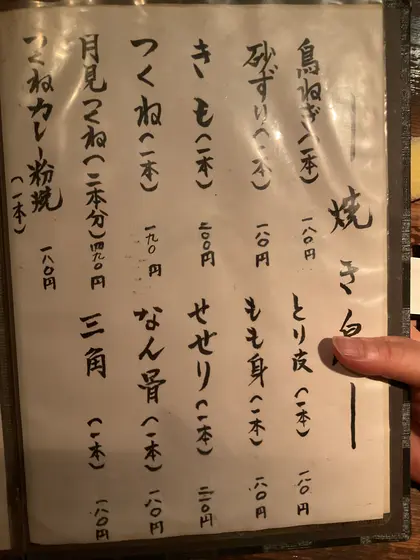 ー焼き鳥ー
鳥ねぎ(一本) 一八〇円
とり皮(一本) 一八〇円
砂ずり(一本) 一八〇円
もも身(一本) 一八〇円
きも(一本) 二〇〇円
せせり(一本) 二二〇円
つくね(一本) 一九〇円
なん骨(一本) 一八〇円
月見つくね(二本分) 四九〇円
三角(一本) 一八〇円
つくねカレー粉焼(一本) 一八〇円